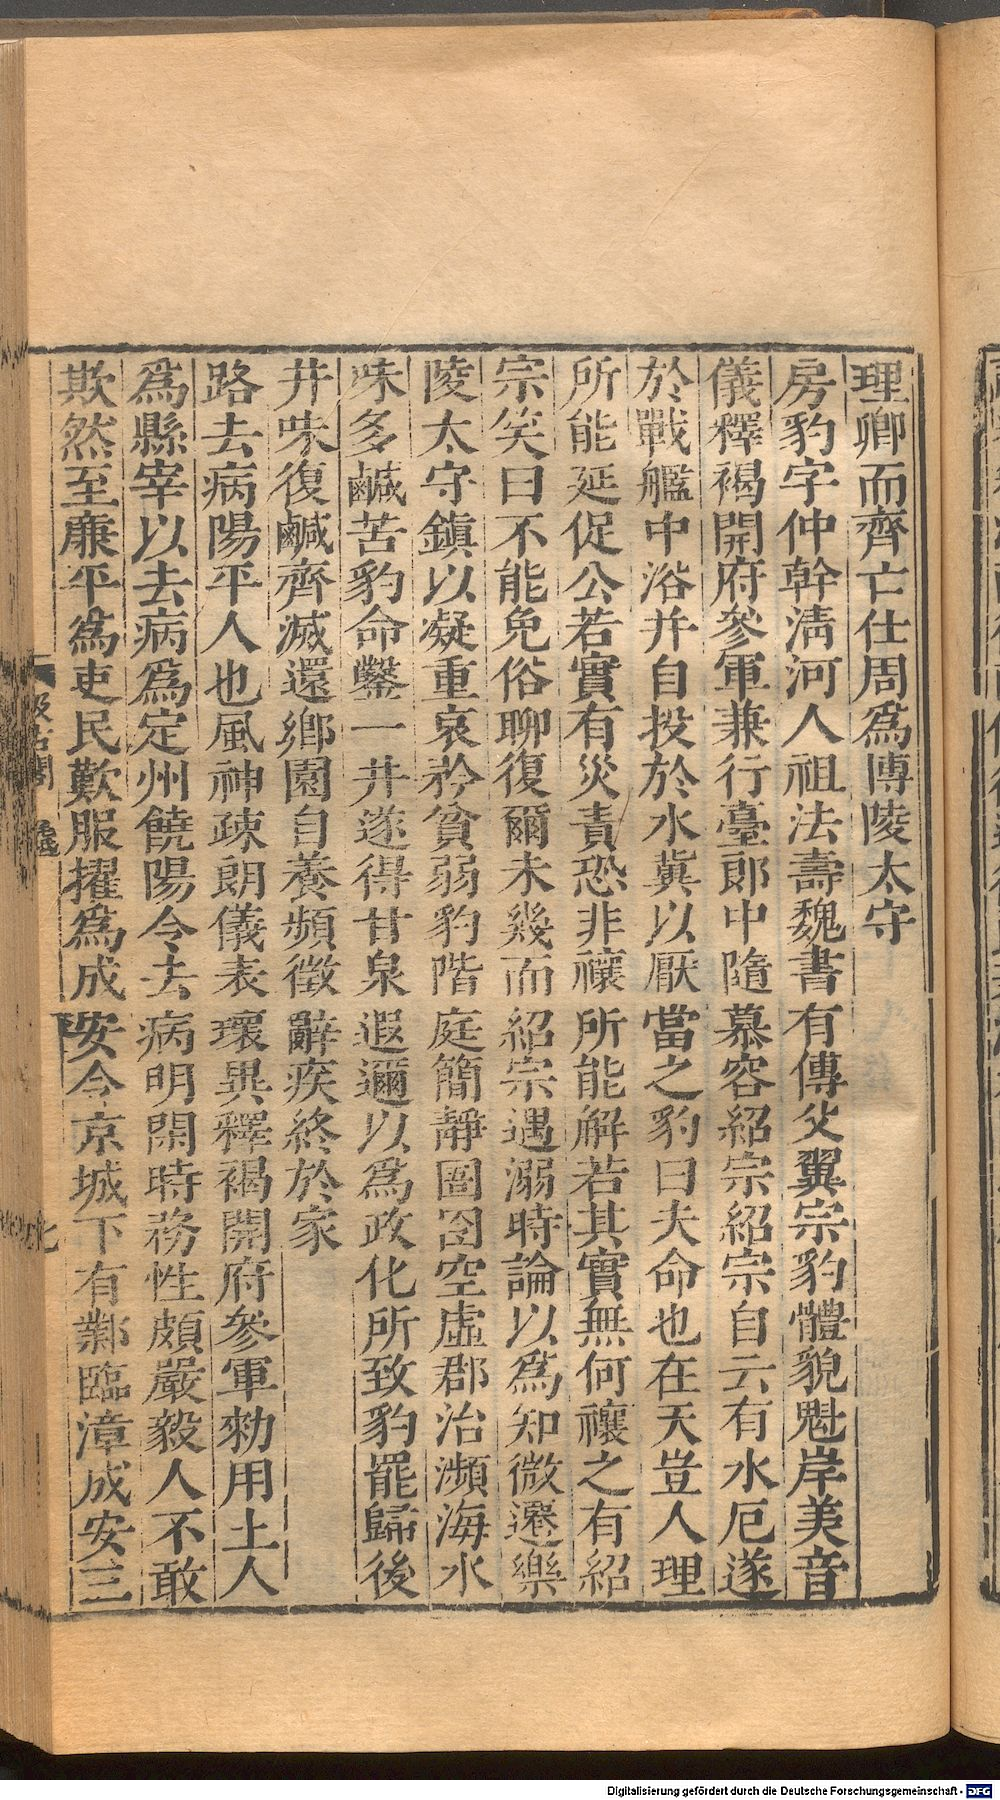 理卿而齊亡仕周爲博陵太守
房豹字仲幹淸河人祖法壽魏書有傳父翼宗豹體貌魁岸美音
儀釋褐開府參軍兼行臺郎中隨慕容紹宗紹宗自云有水厄遂
於戰艦中浴并自投於水冀以厭當之豹曰夫命也在天豈人理
所能延促公若實有災眚恐非禳所能解若其實無何禳之有紹
宗笑曰不能免俗聊復爾未幾而紹宗遇溺時論以爲知微遷樂
陵太守鎮以凝重哀矜貧弱豹階庭簡靜圄圄空虛郡治瀕海水
味多鹹苦豹命鑿一井遂得甘泉遐邇以爲政化所致豹罷歸後
井味復鹹齊滅還鄉園自養頻徵辭疾終於家
路去病陽平人也風神疎朗儀表瓌異釋褐開府參軍勑用土人
爲縣宰以去病爲定州饒陽令去病明閑時務性頗嚴毅人不敢
欺然至廉平爲吏民歎服擢爲成安令京城下有鄴臨漳成安三
汲古閣
Digitalisierung gefördert durch die Deutsche Forschungsgemeinschaft - DFG